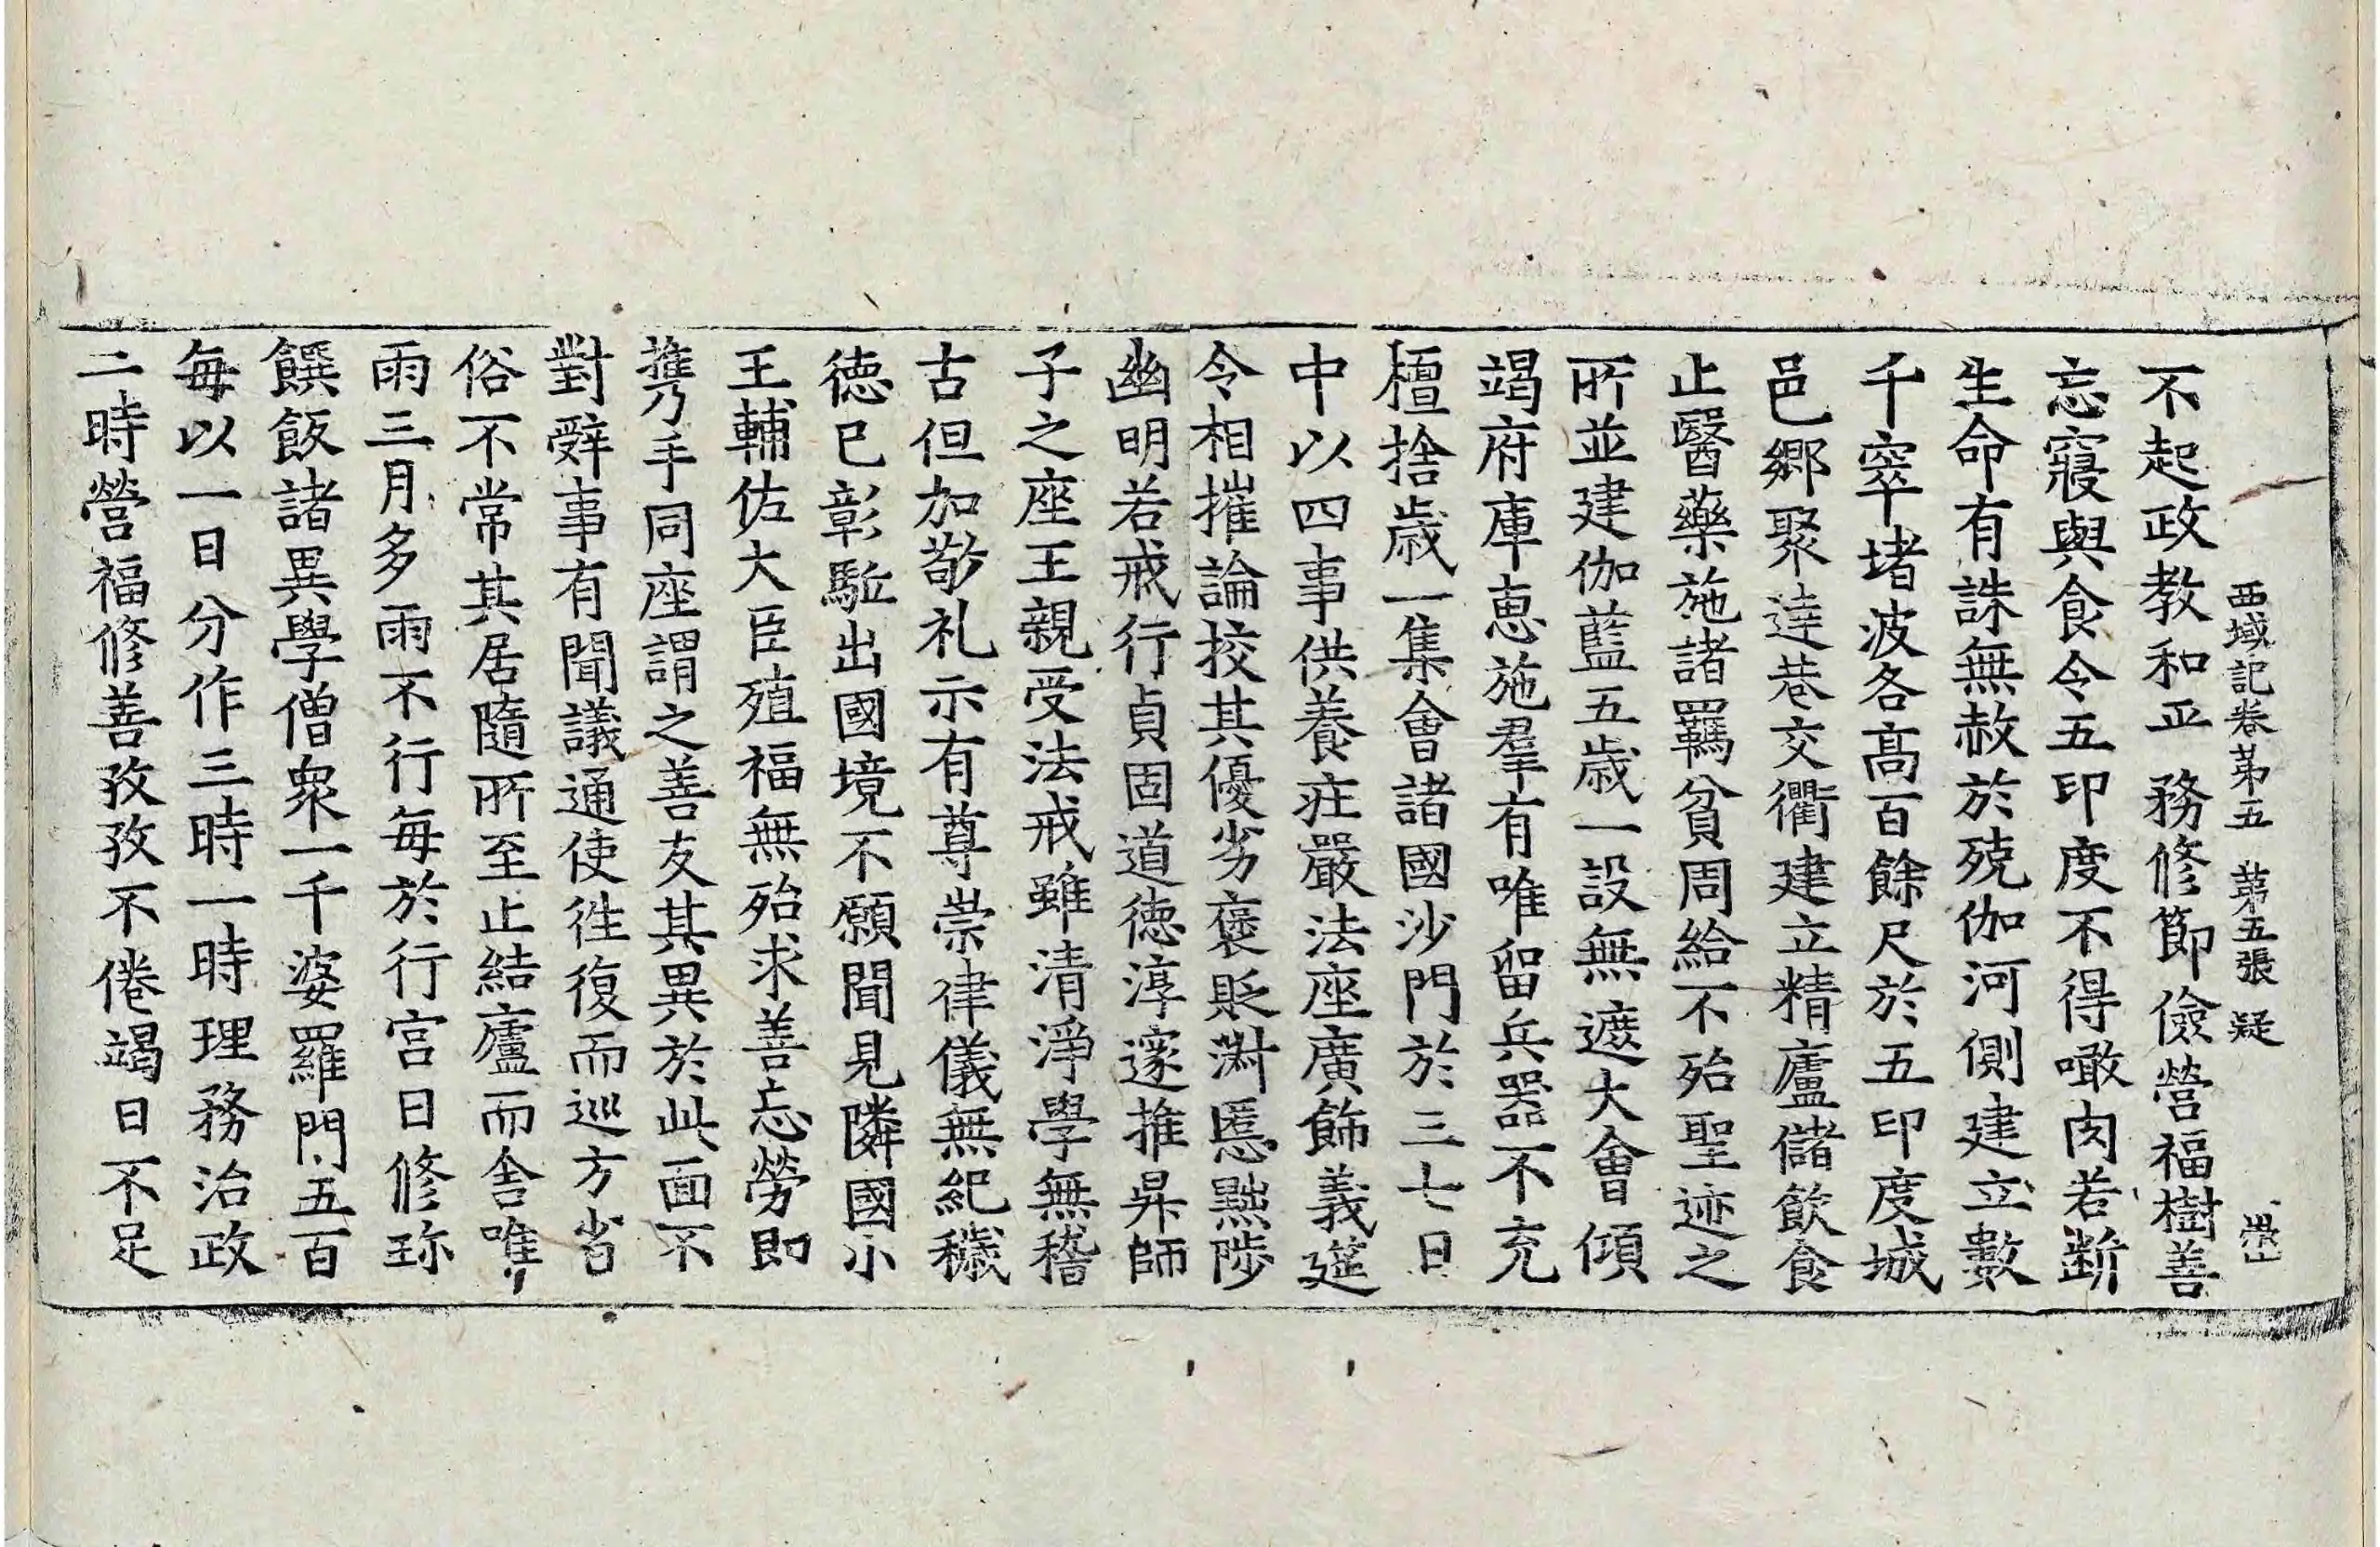 西域記卷第五 第五張 疑
不起政教和正務修節儉營福樹善
忘寢與食令五印度不得噉肉若斷
生命有誅無赦於殑伽河側建立數
千窣堵波各高百餘尺於五印度城
邑鄉聚達巷交衢建立精廬儲飲食
止醫藥施諸羈貧周給不殆聖迹之
所並建伽藍五歲一設無遮大會傾
竭府庫惠施羣有唯留兵器不充
檀捨歲一集會諸國沙門於三七日
中以四事供養莊嚴法座廣飾義筵
令相摧論挍其優劣褒貶淑慝黜陟
幽明若戒行貞固道德淳邃推昇師
子之座王親受法戒雖清淨學無稽
古但加敬礼示有尊崇律儀無紀穢
德已彰駈出國境不願聞見隣國小
王輔佐大臣殖福無殆求善忘勞即
携手同座謂之善友其異於此面不
對辭事有聞議通使往復而巡方省
俗不常其居隨所至止結廬而舍唯
雨三月多雨不行每於行宮日修珎
饌飯諸異學僧衆一千婆羅門五百
每以一日分作三時一時理務治政
二時營福修善孜孜不倦竭日不足